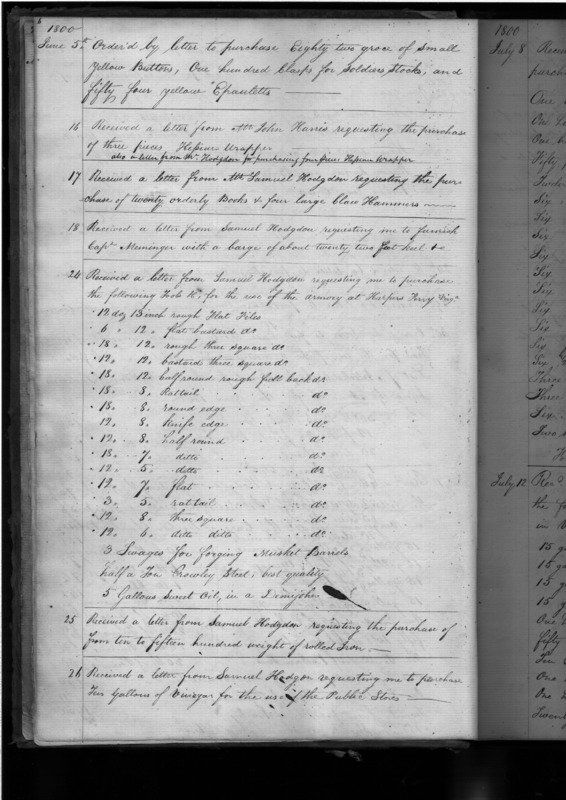 1800
June 5th Order'd by letter to purchase Eighty two groce of small
yellow Buttons, One hundred Clasps for Soldiers Stocks, and
fifty four yellow Epauletts
16 Received a letter from Mr. John Harris requesting the purchase
of three pieces Hessian Wrapper
also a letter from Mr. Hodgdon for purchasing four pieces Hessian Wrapper
17 Received a letter from Mr. Samuel Hodgdon requesting the pur-
chase of twenty orderly Books & four large Claw Hammers
18 Received a letter from Samuel Hodgdon requesting me to furnish
Capt. Meminger with a barge of about twenty two feet keel &c
24 Received a letter from Samuel Hodgdon requesting me to purchase
the following for the use of the armory at Harpers Ferry Virga
12 doz 13 inch rough Flat Files
6 " 12 " flat bastard do
18 " 12 " rough three square do
12 " 12 " bastard three square do
18 " 12 " half round rough full back do
18 " 8 " Rattail do
18 " 8 " round edge do
12 " 8 " knife edge do
12 " 8 " half round do
18 " 7 " ditto do
12 " 5 " ditto do
12 " 7 " flat do
3 " 5 " rattail do
12 " 8 " three square do
12 " 6 " ditto ditto do
3 Swages for forging Musket Barrels
half a Ton Crowley Steel, best quality
5 Gallons Sweet Oil, in a Demijohn
25 Received a letter from Samuel Hodgdon requesting the purchase of
from ten to fifteen hundred weight of rolled Iron
26 Received a letter from Samuel Hodgdon requesting me to purchase
Ten Gallons of Vinegar for the use of the Public Stores
1800
July 8 Recei
purch
One
One
One
Fifty
Twelve
Six
Six
Six
Six
Six
Six
Six
Six
Six
Six
Three
Three
Six
Two
July 12 Recd
the f
in
15 g
15 g
15 g
15 g
One
fifty
Ten
One
One
Twent